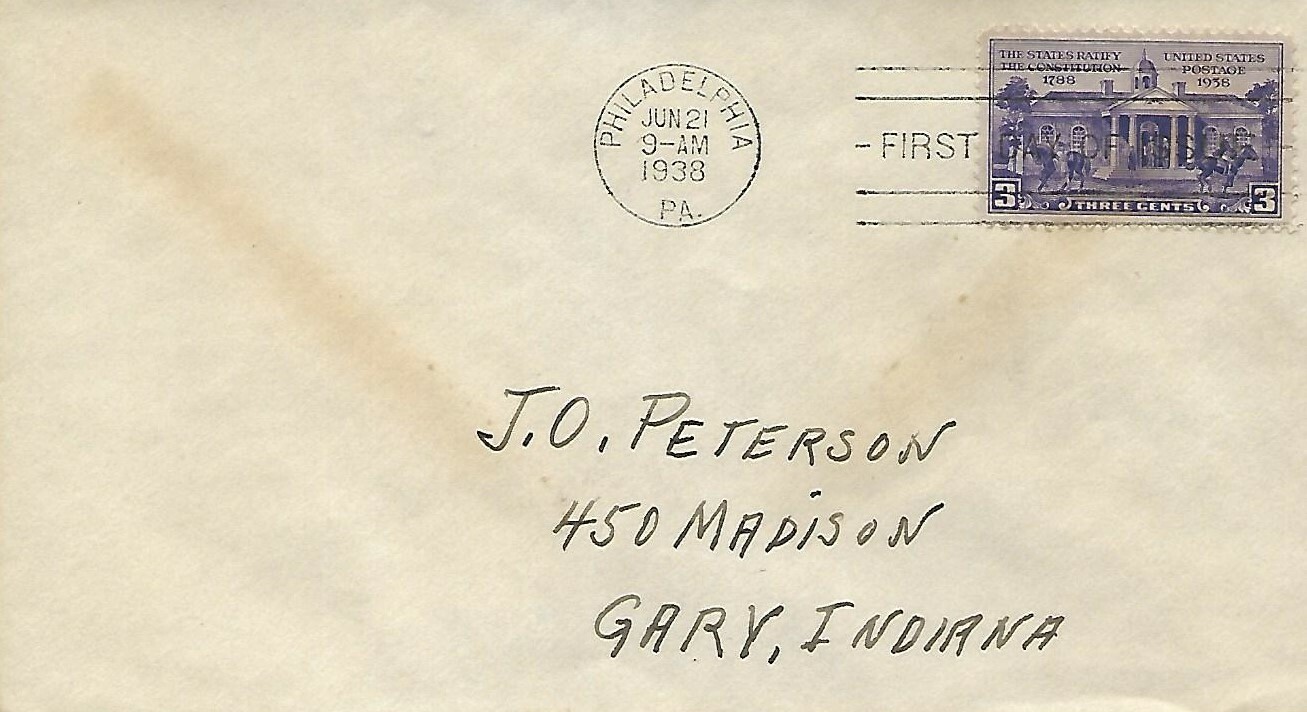 PHILADELPHIA
JUN 21
9-AM
1938
PA.
FIRST DAY OF ISSUE
THE STATES RATIFY
THE CONSTITUTION
1788
UNITED STATES
POSTAGE
1938
3
THREE CENTS
3
J.O. PETERSON
450 MADISON
GARY, INDIANA